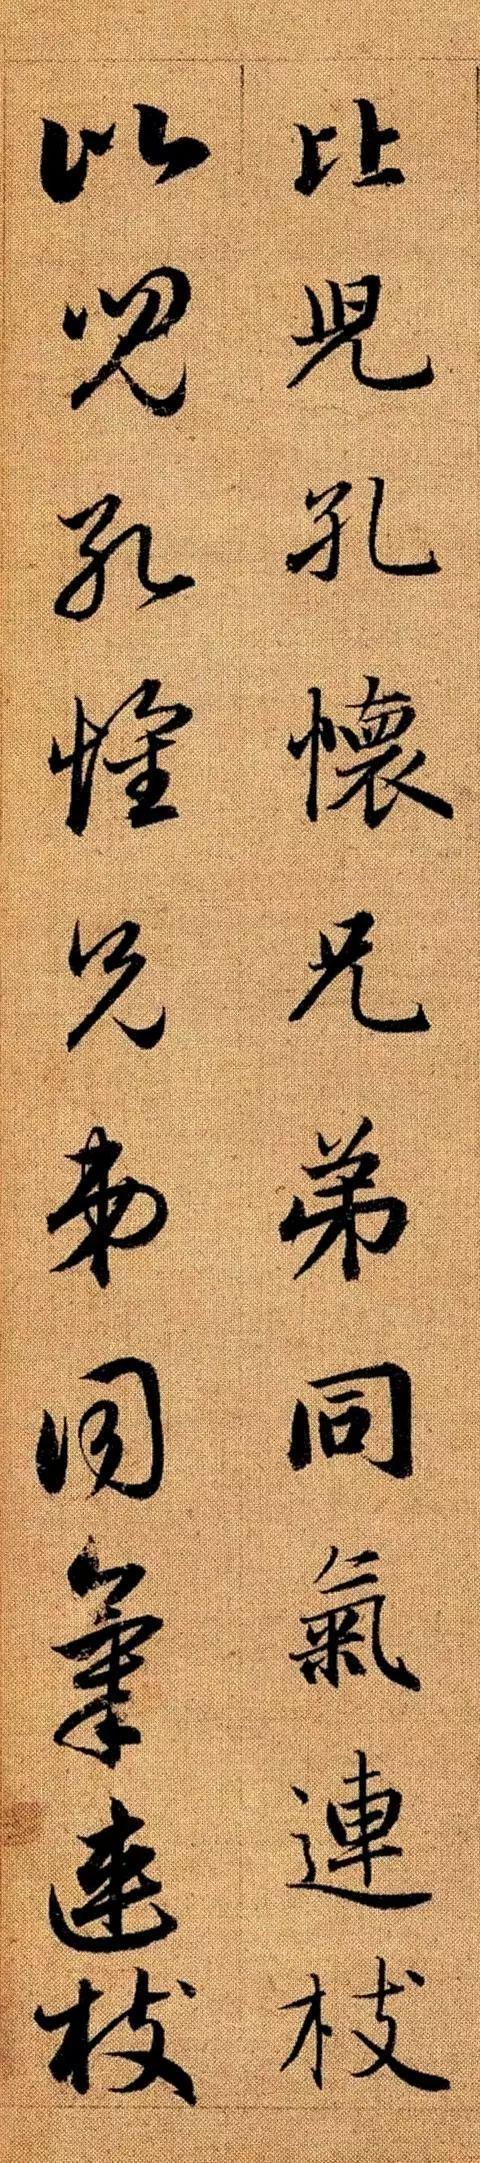 比兒孔懷兄弟同氣連枝
比兒孔懷兄弟同氣連枝